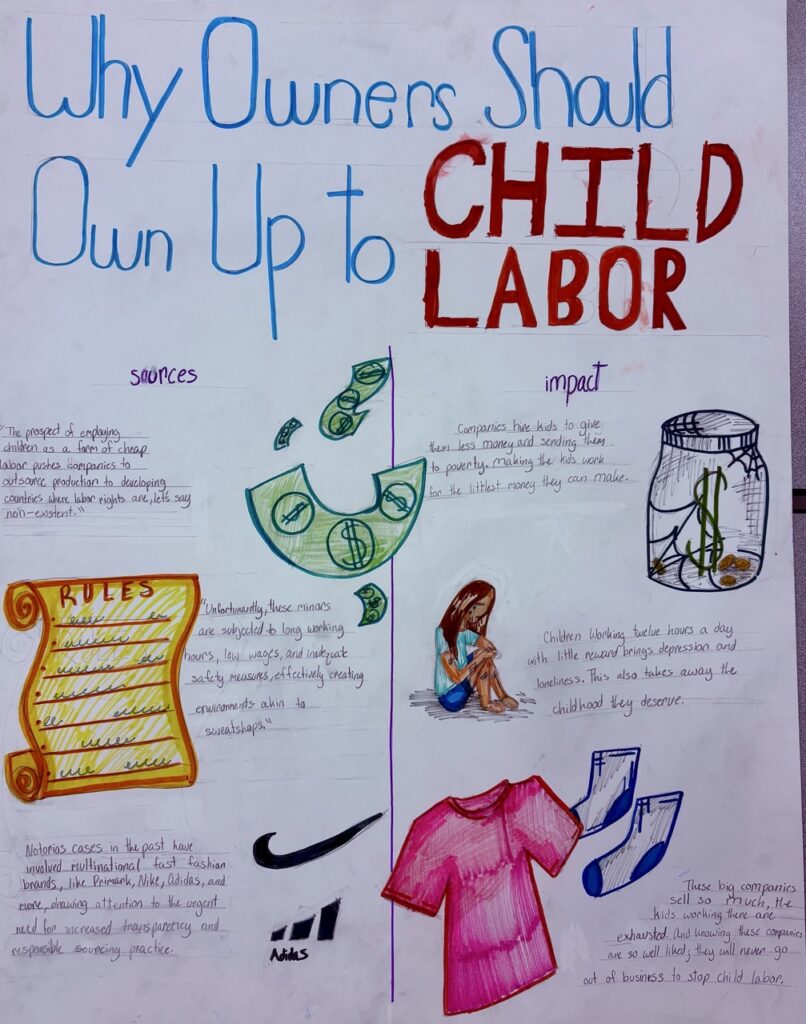 Why Owners Should
Own Up to CHILD
LABOR
sources
"The prospect of employing
children as a form of cheap
labor pushes companies to
outsource production to developing
countries where labor rights are, let's say
non-existent."
RULES
"Unfortunantly, these minors
are subjected to long working
hours, low wages, and inadequate
safety measures, effectively creating
environments akin to
sweatshops."
Notorios cases in the past have
involved multinational fast fashion
brands, like Primark, Nike, Adidas, and
more, drawing attention to the urgent
need for increased transparency and
responsible sourcing practice.
Adidas
impact
Companies hire kids to give
them less money and sending them
to poverty. making the kids work
for the littlest money they can make.
Children working twelve hours a day
with little reward brings depression and
lonliness. This also takes away the
childhood they deserve.
These big companies
sell so much, the
kids working there are
exhausted. And knowing these companies
are so well liked; they will never go
out of business to stop child labor.